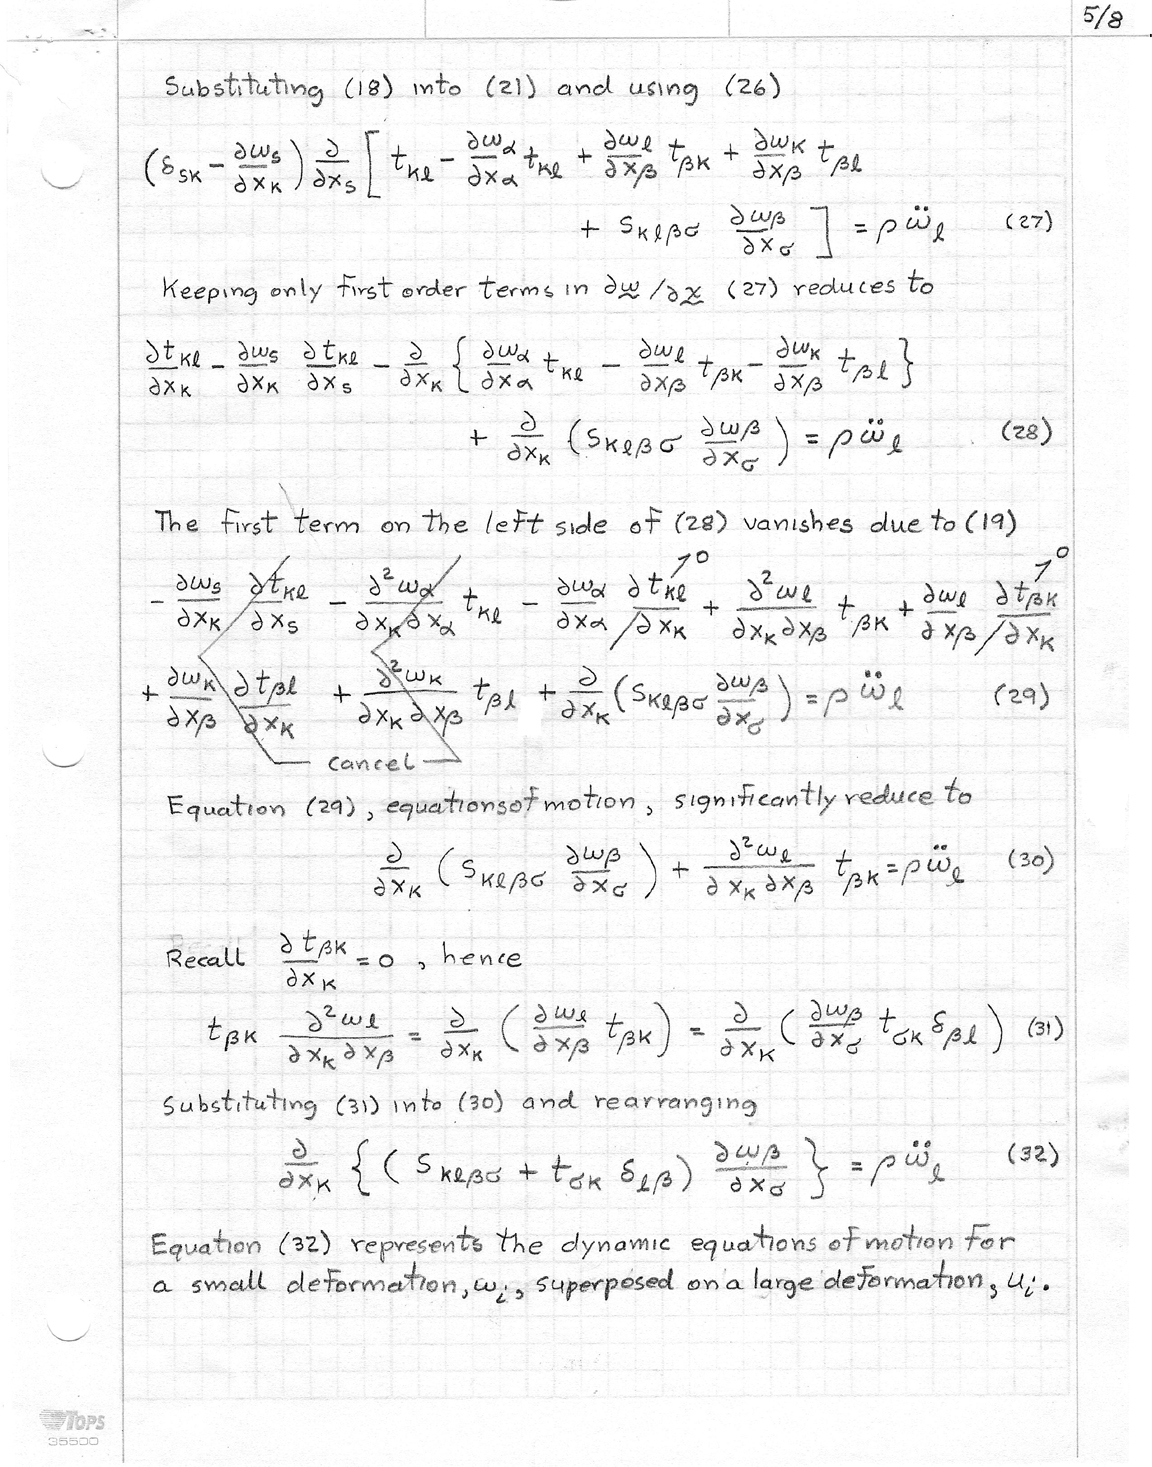 5/8
Substituting (18) into (21) and using (26)
(δ_{SK} - ∂w_S/∂x_K) ∂/∂x_S [ t_{Kl} - ∂w_α/∂x_α t_{Kl} + ∂w_l/∂x_β t_{βK} + ∂w_K/∂x_β t_{βl}
+ S_{Klβσ} ∂w_β/∂x_σ ] = ρ ẅ_l (27)
Keeping only first order terms in ∂w/∂x (27) reduces to
∂t_{Kl}/∂x_K - ∂w_S/∂x_K ∂t_{Kl}/∂x_S - ∂/∂x_K { ∂w_α/∂x_α t_{Kl} - ∂w_l/∂x_β t_{βK} - ∂w_K/∂x_β t_{βl} }
+ ∂/∂x_K (S_{Klβσ} ∂w_β/∂x_σ) = ρ ẅ_l (28)
The first term on the left side of (28) vanishes due to (19)
- ∂w_S/∂x_K ∂t_{Kl}/∂x_S - ∂²w_α/∂x_K∂x_α t_{Kl} - ∂w_α/∂x_α ∂t_{Kl}/∂x_K ↗0 + ∂²w_l/∂x_K∂x_β t_{βK} + ∂w_l/∂x_β ∂t_{βK}/∂x_K ↗0
+ ∂w_K/∂x_β ∂t_{βl}/∂x_K + ∂²w_K/∂x_K∂x_β t_{βl} + ∂/∂x_K (S_{Klβσ} ∂w_β/∂x_σ) = ρ ẅ_l (29)
cancel
Equation (29), equations of motion, significantly reduce to
∂/∂x_K (S_{Klβσ} ∂w_β/∂x_σ) + ∂²w_l/∂x_K∂x_β t_{βK} = ρ ẅ_l (30)
Recall ∂t_{βK}/∂x_K = 0, hence
t_{βK} ∂²w_l/∂x_K∂x_β = ∂/∂x_K (∂w_l/∂x_β t_{βK}) = ∂/∂x_K (∂w_β/∂x_σ t_{σK} δ_{βl}) (31)
Substituting (31) into (30) and rearranging
∂/∂x_K { (S_{Klβσ} + t_{σK} δ_{lβ}) ∂w_β/∂x_σ } = ρ ẅ_l (32)
Equation (32) represents the dynamic equations of motion for
a small deformation, w_i, superposed on a large deformation, u_i.
TOPS
35500